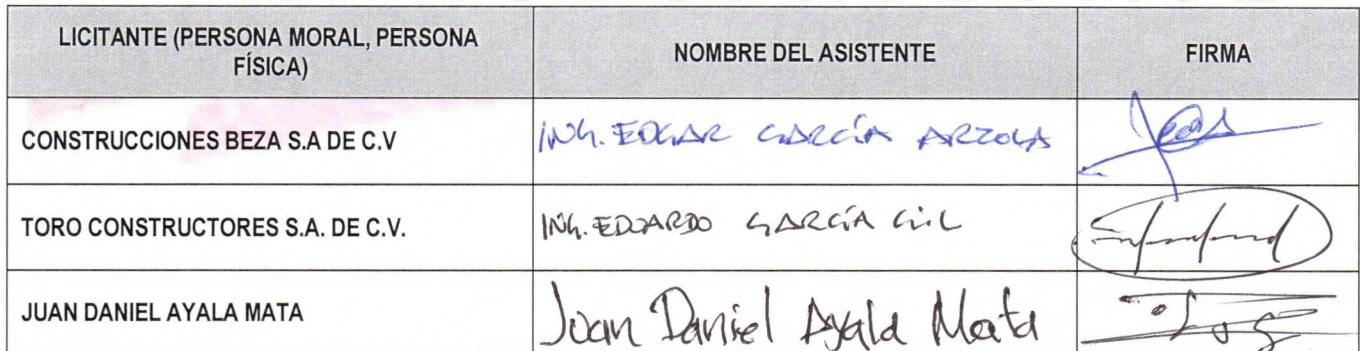 LICITANTE (PERSONA MORAL, PERSONA
FÍSICA)
NOMBRE DEL ASISTENTE
FIRMA
CONSTRUCCIONES BEZA S.A DE C.V
ING. EDGAR GARCÍA ARZOLA
TORO CONSTRUCTORES S.A. DE C.V.
ING. EDUARDO GARCÍA GIL
JUAN DANIEL AYALA MATA
Juan Daniel Ayala Mata